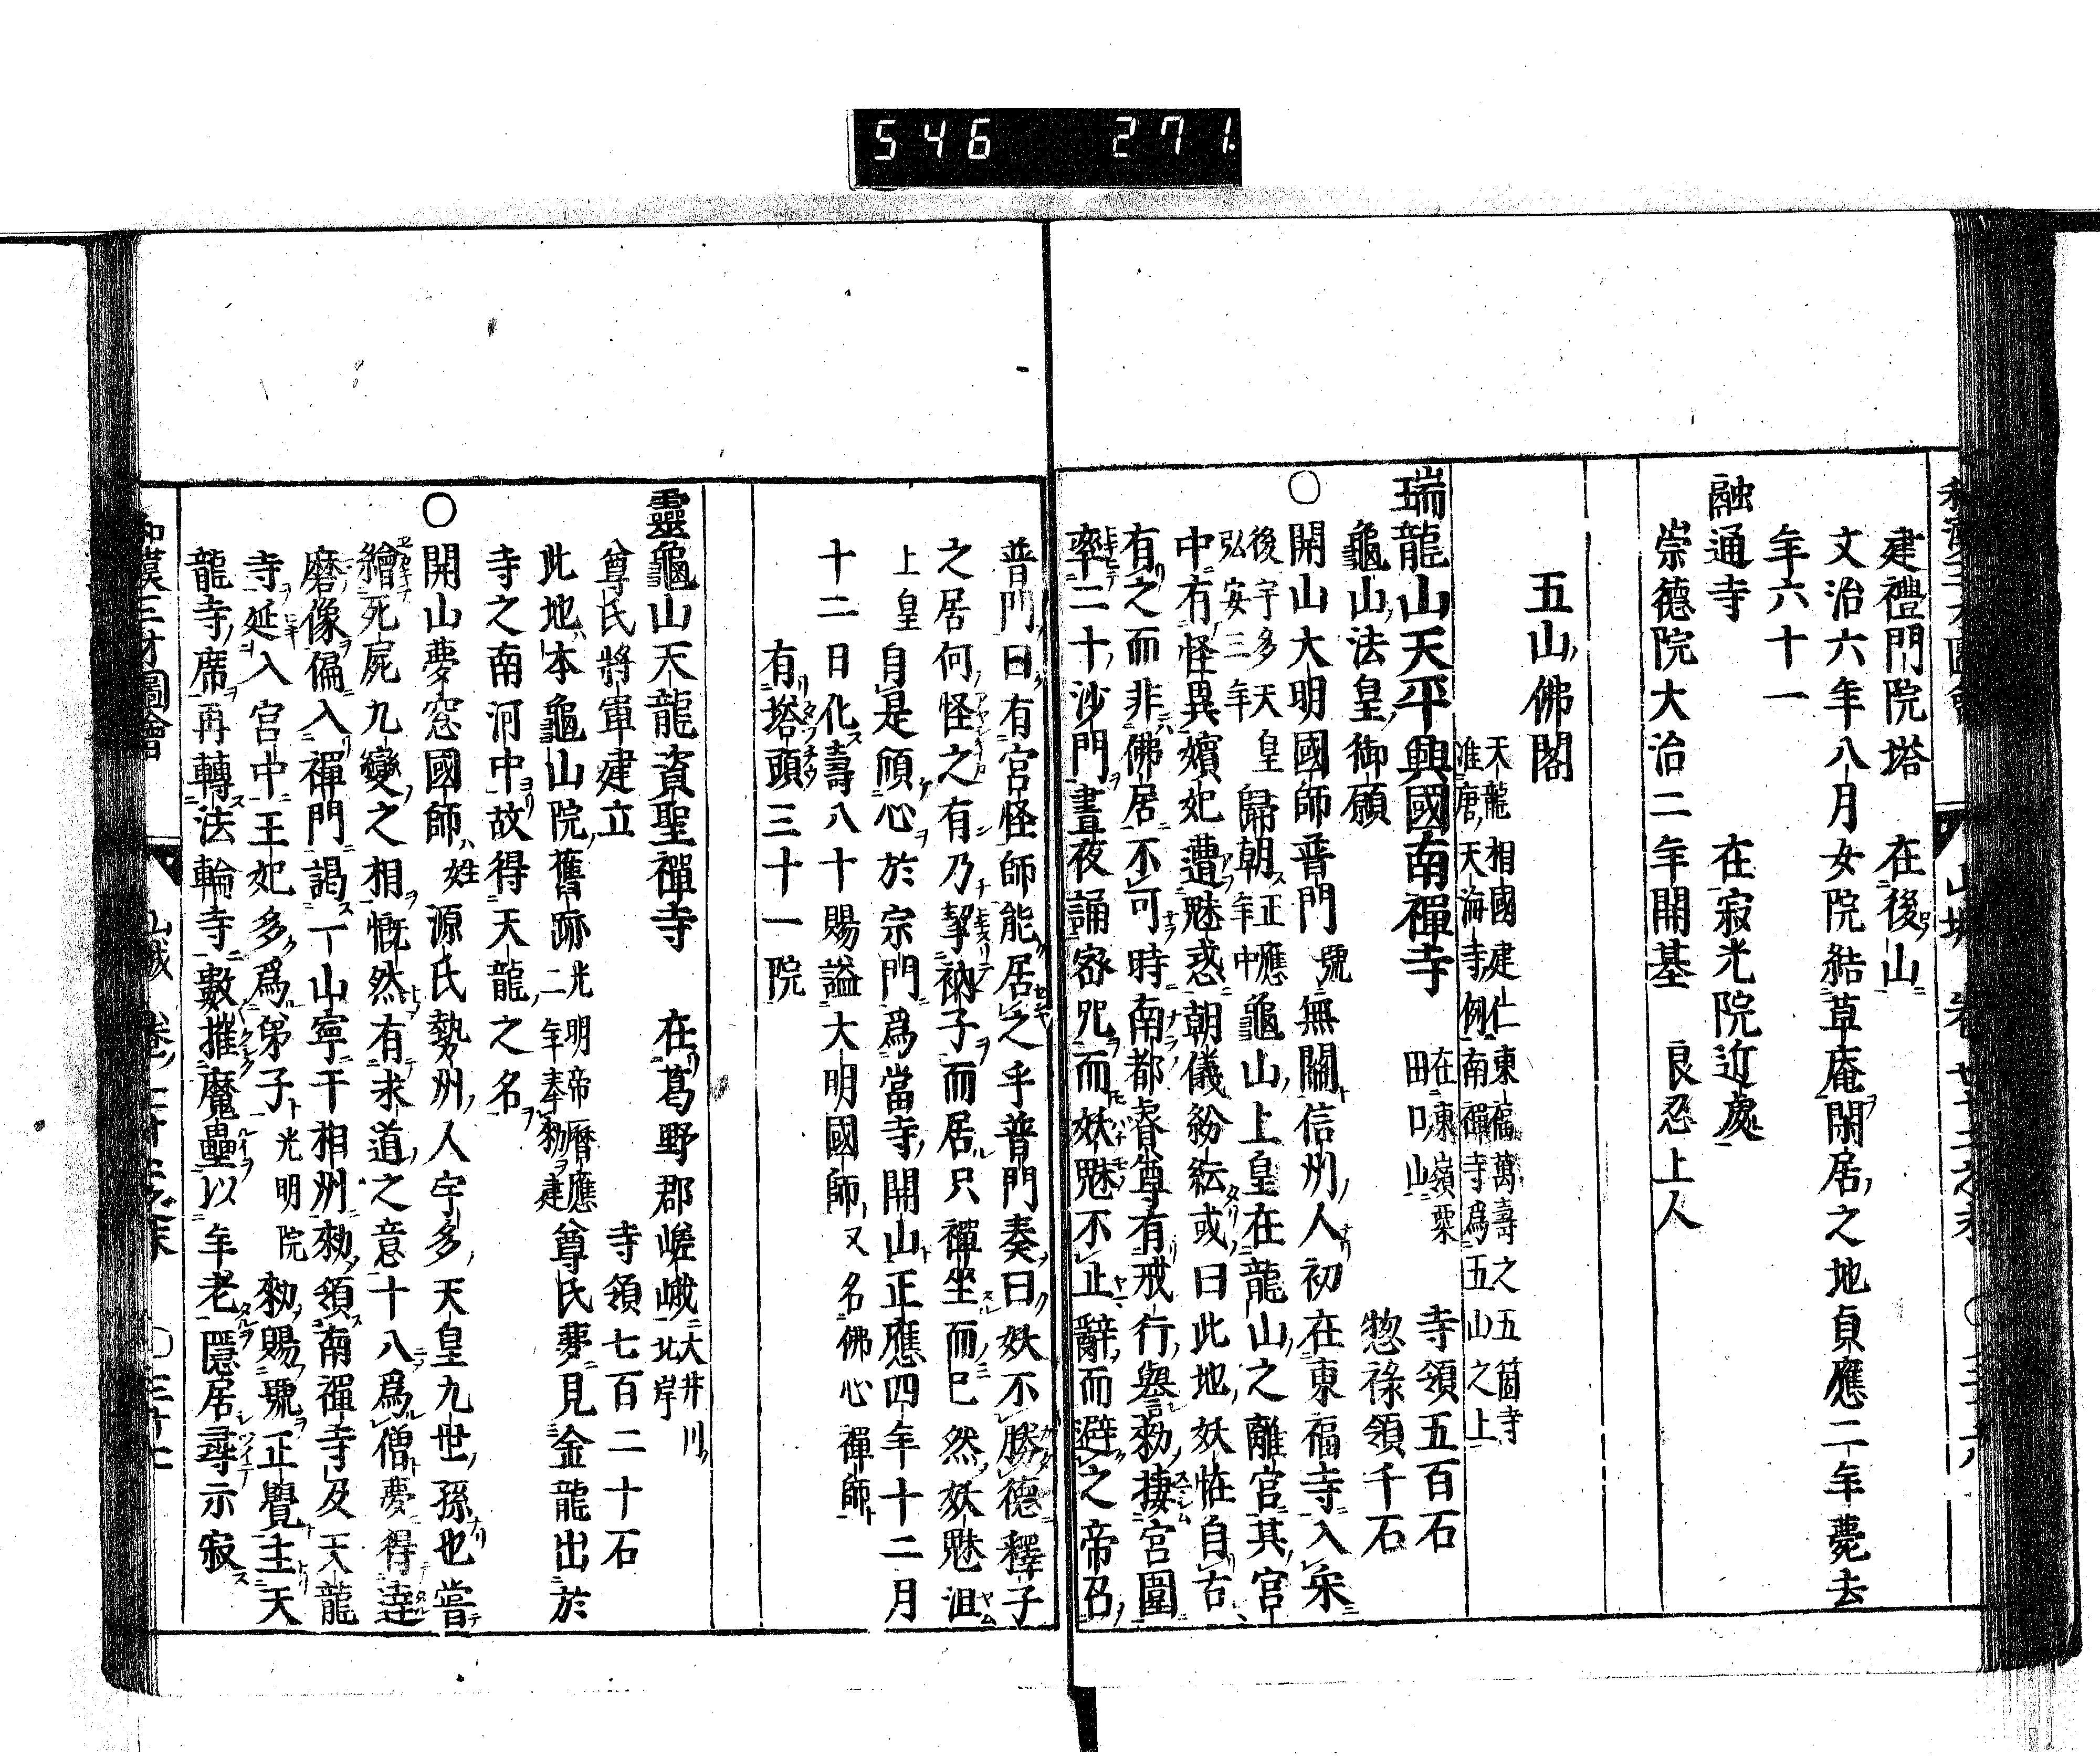 546 271
建禮門院塔 在後山
文治六年八月女院結草庵閑居之地貞應二年薨去
年六十一
融通寺 在寂光院近處
崇德院大治二年開基 良忍上人
五山佛閣
天龍 相國 建仁 東福 萬壽之五箇寺
准唐天海寺例南禪寺爲五山之上
瑞龍山天平興國南禪寺 在東嶺粟田口山 寺領五百石
龜山法皇御願 惣祿領千石
〇開山大明國師普門號無關信州人初在東福寺入宋
後宇多天皇弘安三年歸朝正應年中龜山上皇在龍山之離宮其宮
中有怪異嬪妃遭魅惑朝儀紛紜或曰此地妖恠自古
有之而非佛居不可時南都睿尊有戒行譽勅捿宮圍
率二十沙門晝夜誦密咒而妖魅不止辭而避之帝召
普門曰有宮怪師能居之乎普門奏曰妖不勝德釋子
之居何怪之有乃挈衲子而居只禪坐而已然妖魅沮
上皇自是傾心於宗門爲當寺開山正應四年十二月
十二日化壽八十賜謚大明國師又名佛心禪師
有塔頭三十一院
靈龜山天龍資聖禪寺 在葛野郡嵯峨大井川北岸
尊氏將軍建立 寺領七百二十石
此地本龜山院舊跡光明帝曆應二年奉勅建尊氏夢見金龍出於
寺之南河中故得天龍之名
〇開山夢窓國師姓源氏勢州人宇多天皇九世孫也嘗
繪死屍九變之相慨然有求道之意十八爲僧夢得達
磨像偏入禪門謁一山寧于相州勅領南禪寺及天龍
寺延入宮中王妃多爲弟子光明院勅賜號正覺主天
龍寺席再轉法輪寺數摧魔壘以年老隱居尋示寂